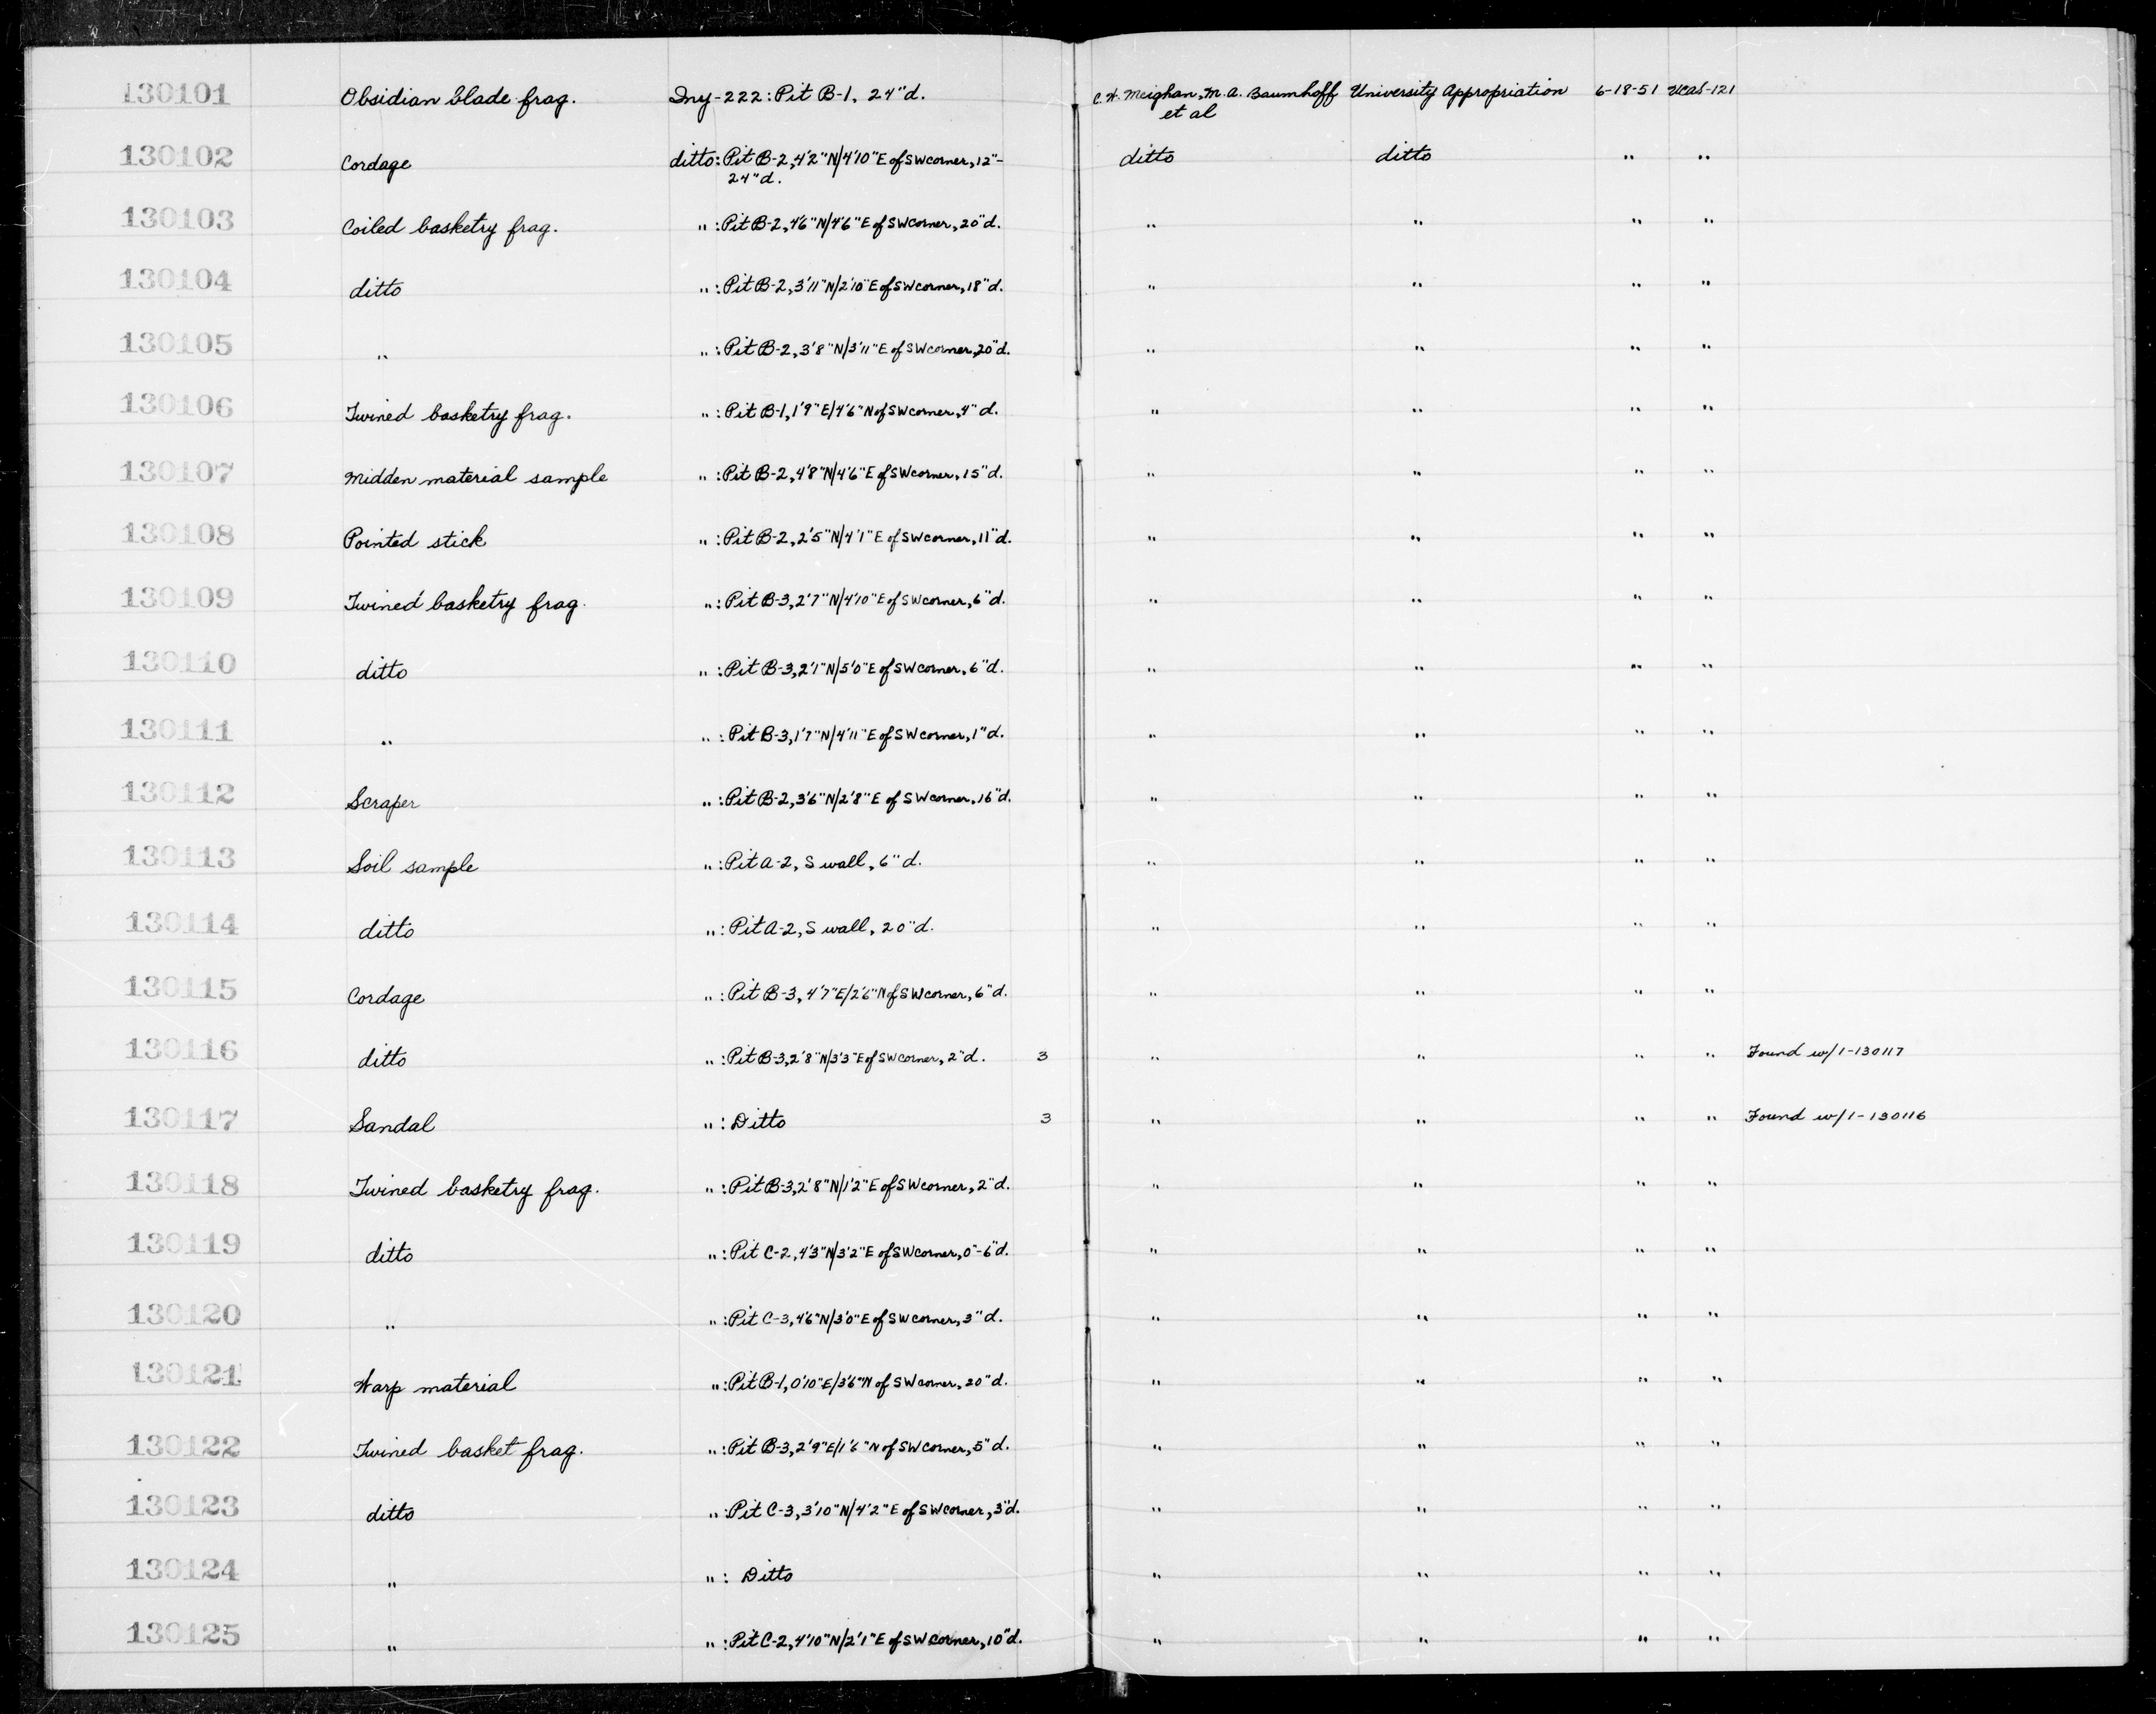 130101 Obsidian blade frag. Iny-222: Pit B-1, 24"d. C.W. Meighan, M.A. Baumhoff University Appropriation 6-18-51 UCAS-121
et al
130102 Cordage ditto: Pit B-2, 4'2"N/4'10"E of SW corner, 12"- ditto ditto " "
24"d.
130103 Coiled basketry frag. ": Pit B-2, 4'6"N/4'6"E of SW corner, 20"d. " " " "
130104 ditto ": Pit B-2, 3'11"N/2'10"E of SW corner, 18"d. " " " "
130105 " ": Pit B-2, 3'8"N/3'11"E of SW corner, 20"d. " " " "
130106 Twined basketry frag. ": Pit B-1, 1'9"E/4'6"N of SW corner, 4"d. " " " "
130107 Midden material sample ": Pit B-2, 4'8"N/4'6"E of SW corner, 15"d. " " " "
130108 Pointed stick ": Pit B-2, 2'5"N/4'1"E of SW corner, 11"d. " " " "
130109 Twined basketry frag. ": Pit B-3, 2'7"N/4'10"E of SW corner, 6"d. " " " "
130110 ditto ": Pit B-3, 2'1"N/5'0"E of SW corner, 6"d. " " " "
130111 " ": Pit B-3, 1'7"N/4'11"E of SW corner, 1"d. " " " "
130112 Scraper ": Pit B-2, 3'6"N/2'8"E of SW corner, 16"d. " " " "
130113 Soil sample ": Pit A-2, S wall, 6"d. " " " "
130114 ditto ": Pit A-2, S wall, 20"d. " " " "
130115 Cordage ": Pit B-3, 4'7"E/2'6"N of SW corner, 6"d. " " " "
130116 ditto ": Pit B-3, 2'8"N/3'3"E of SW corner, 2"d. 3 " " " " Found w/1-130117
130117 Sandal ": Ditto 3 " " " " Found w/1-130116
130118 Twined basketry frag. ": Pit B-3, 2'8"N/1'2"E of SW corner, 2"d. " " " "
130119 ditto ": Pit C-2, 4'3"N/3'2"E of SW corner, 0"-6"d. " " " "
130120 " ": Pit C-3, 4'6"N/3'0"E of SW corner, 3"d. " " " "
130121 Warp material ": Pit B-1, 0'10"E/3'6"N of SW corner, 20"d. " " " "
130122 Twined basket frag. ": Pit B-3, 2'9"E/1'6"N of SW corner, 5"d. " " " "
130123 ditto ": Pit C-3, 3'10"N/4'2"E of SW corner, 3"d. " " " "
130124 " ": Ditto " " " "
130125 " ": Pit C-2, 4'10"N/2'1"E of SW corner, 10"d. " " " "